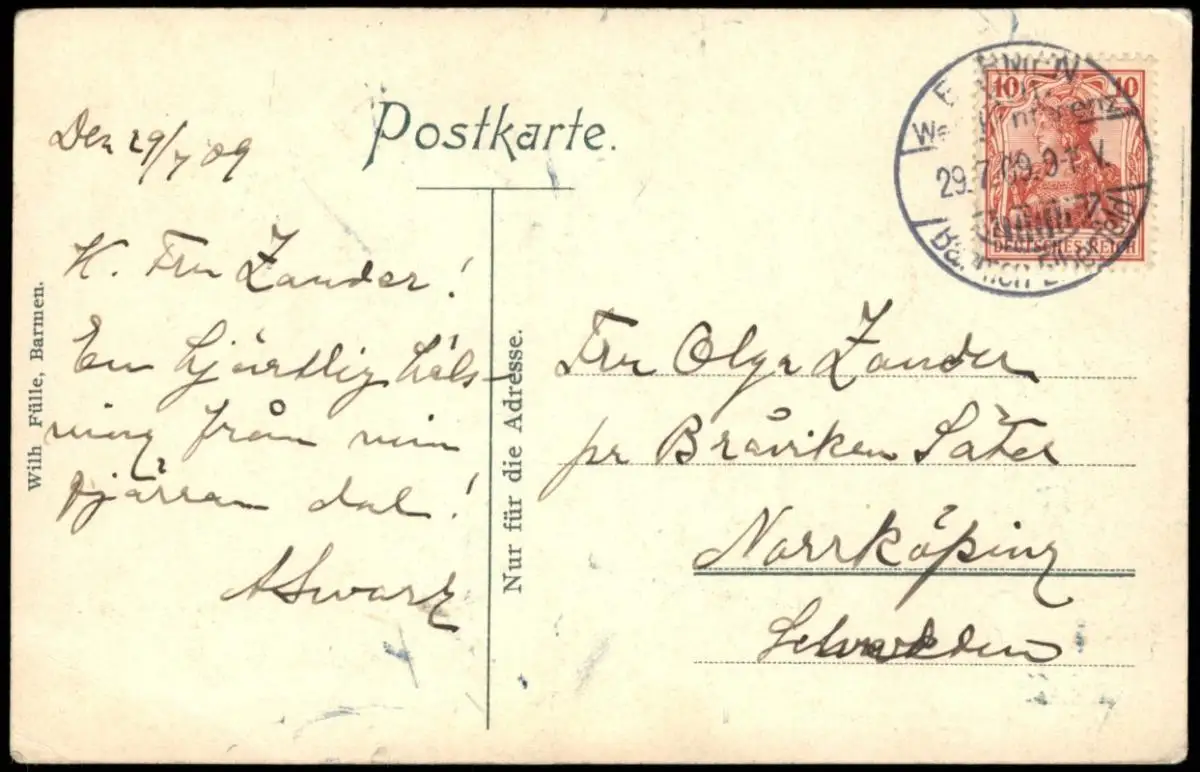 Postkarte.
Den 29/7 09
H. Fru Zander!
En hjärtlig häls-
ning från min
fjärran dal!
ASwarz
Wilh Fülle, Barmen.
Nur für die Adresse.
10 10
DEUTSCHES REICH
29.7.09.9-
Fru Olga Zander
pr Bråviken Säter
Norrköping
Schweden